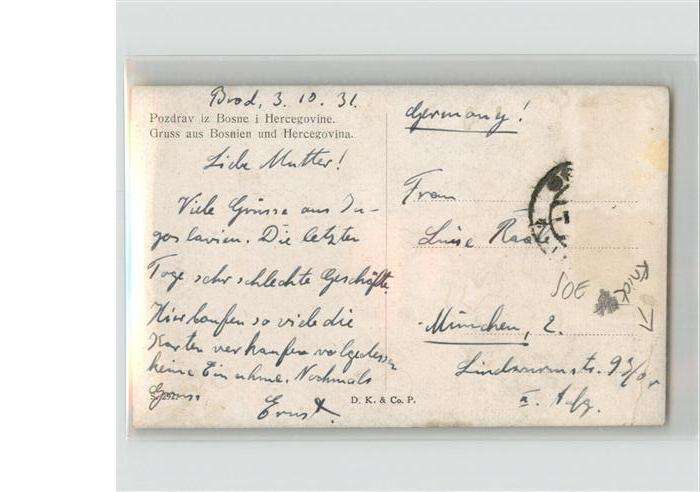 Brod, 3. 10. 31.
Pozdrav iz Bosne i Hercegovine.
Gruss aus Bosnien und Hercegovina.
Liebe Mutter!
Viele Grüsse aus Ju-
goslavien. Die letzten
Tage sehr schlechte Geschäfte.
Hier laufen so viele die
Karten verkaufen
keine Einahme. Nochmals
Gruss
Ernst.
D. K. & Co. P.
Germany!
Frau
Luise
München, 2.
Lindwurmstr.
Knick